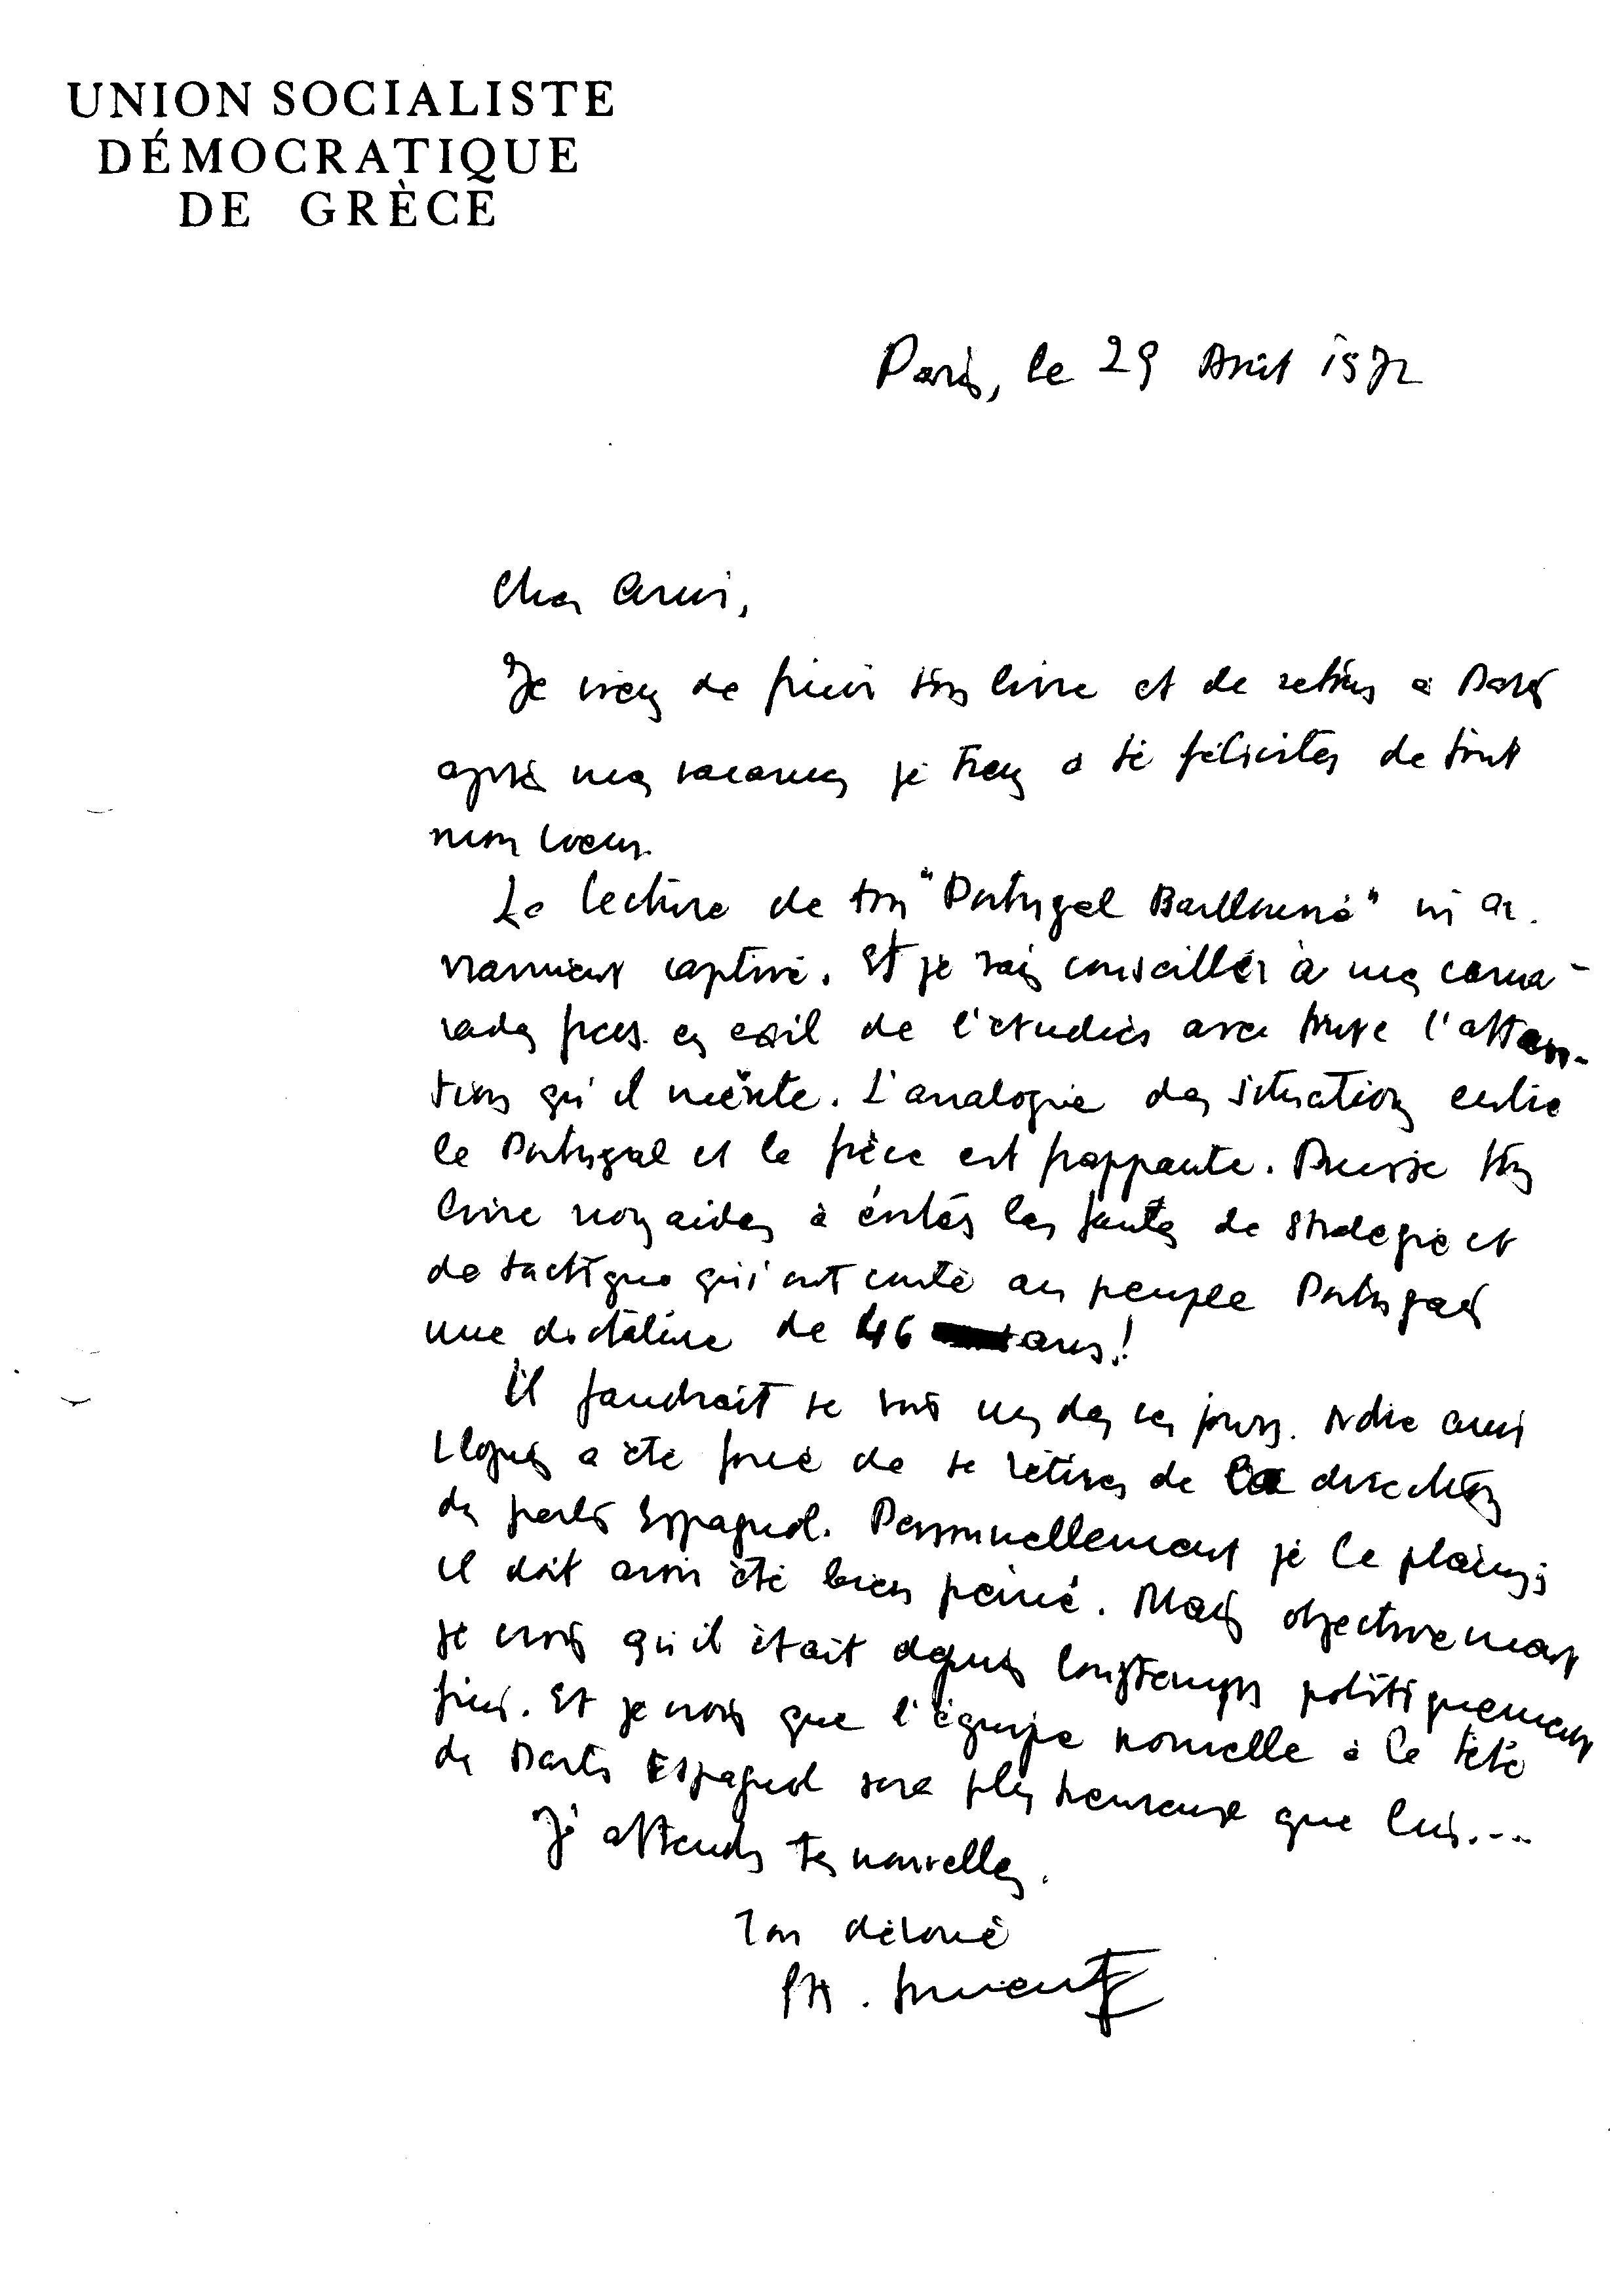 UNION SOCIALISTE
DÉMOCRATIQUE
DE GRÈCE
Paris, le 29 Avril 1972
Cher ami,
Je viens de finir ton livre et de retour à Paris
après mes vacances je tiens à te féliciter de tout
mon coeur.
La lecture de ton "Portugal Baillonné" m'a
vraiment captivé. Et je vais conseiller à mes cama-
rades grecs en exil de l'étudier avec toute l'atten-
tion qu'il mérite. L'analogie des situations entre
le Portugal et la Grèce est frappante. Puisse ton
livre nous aider à éviter les fautes de stratégie et
de tactique qui ont couté au peuple Portugais
une dictature de 46 ans!
Il faudrait se voir un de ces jours. Notre ami
Llopis a été forcé de se retirer de la direction
du parti Espagnol. Personnellement je le plains;
il doit avoir été bien peiné. Mais objectivement
je crois qu'il était depuis longtemps politiquement
fini. Et je crois que l'équipe nouvelle à la tête
du Parti Espagnol sera plus heureuse que lui....
J'attends tes nouvelles.
Ton dévoué